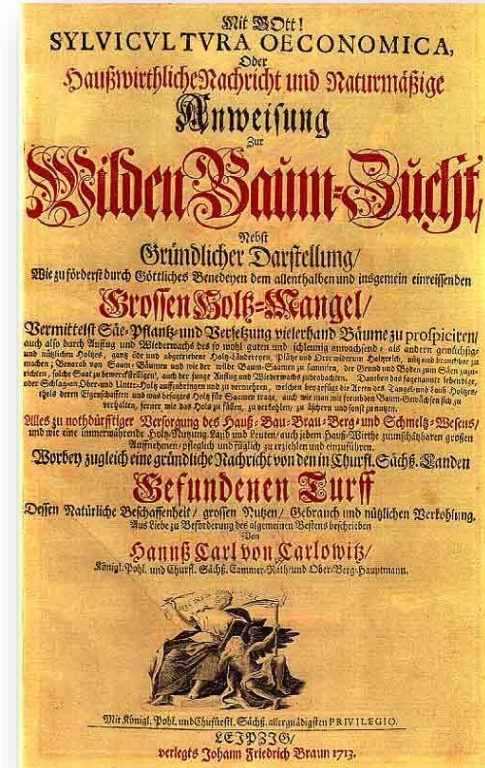 Mit GOtt!
SYLVICVLTVRA OECONOMICA,
Oder
Haußwirthliche Nachricht und Naturmäßige
Anweisung
Zur
Wilden Baum-Zucht,
Nebst
Gründlicher Darstellung/
Wie zu förderst durch Göttliches Benedeyen dem allenthalben und insgemein einreissenden
Grossen Holtz-Mangel/
Vermittelst Säe-Pflantz-und Versetzung vielerhand Bäume zu prospiciren/
auch also durch Anflug und Wiederwachs des so wohl guten und schleunig anwachsend, als andern gewüchsig-
und nützlichen Holtzes, gantz öde und abgetriebene Holtz-Ländereyen, Plätze und Orte wiederum Holtzreich, nütz und brauchbar zu
machen; Generab von Saam-Bäumen und wie der wilde Baum-Saamen zu sammlen, der Grund und Boden zum Säen zuzu-
richten, solche Saat zu bewerckstelligen, auch der junge Anflug und Wiederwachs zu beobachten. Daneben das sogenannte lebendige,
oder Schlag-an Ober-und Unter-Holtz auffzubringen und zu vermehren, welchen beygefügt die Arten des Tangel-und Laub-Holtzes,
theils deren Eigenschafften und was besagtes Holtz für Saamen trage, auch wie man mit frembden Baum-Gewächsen sich zu
verhalten, ferner wie das Holtz zu fällen, zu verkohlen, zu äschern und sonst zu nutzen.
Alles zu nothdürfftiger Versorgung des Hauß-Bau-Brau-Berg-und Schmeltz-Wesens/
und wie eine immerwährende Holtz-Nutzung, Land und Leuten, auch jedem Hauß-Wirthe zu unschätzbaren großen
Auffnehmen, pfleglich und füglich zu erziehlen und einzuführen.
Worbey zugleich eine gründliche Nachricht von den in Churfl. Sächß. Landen
Gefundenen Turff
Dessen Natürliche Beschaffenheit/ grossen Nutzen/ Gebrauch und nützlichen Verkohlung.
Aus Liebe zu Beförderung des algemeinen Bestens beschrieben
Von
Hannß Carl von Carlowitz/
Königl. Pohl. und Churfl. Sächß. Cammer-Rath/ und Ober-Berg-Hauptmann.
Mit Königl. Pohl. und Churfürstl. Sächß. allergnädigsten PRIVILEGIO.
LEJPZJG/
verlegts Johann Friedrich Braun 1713.